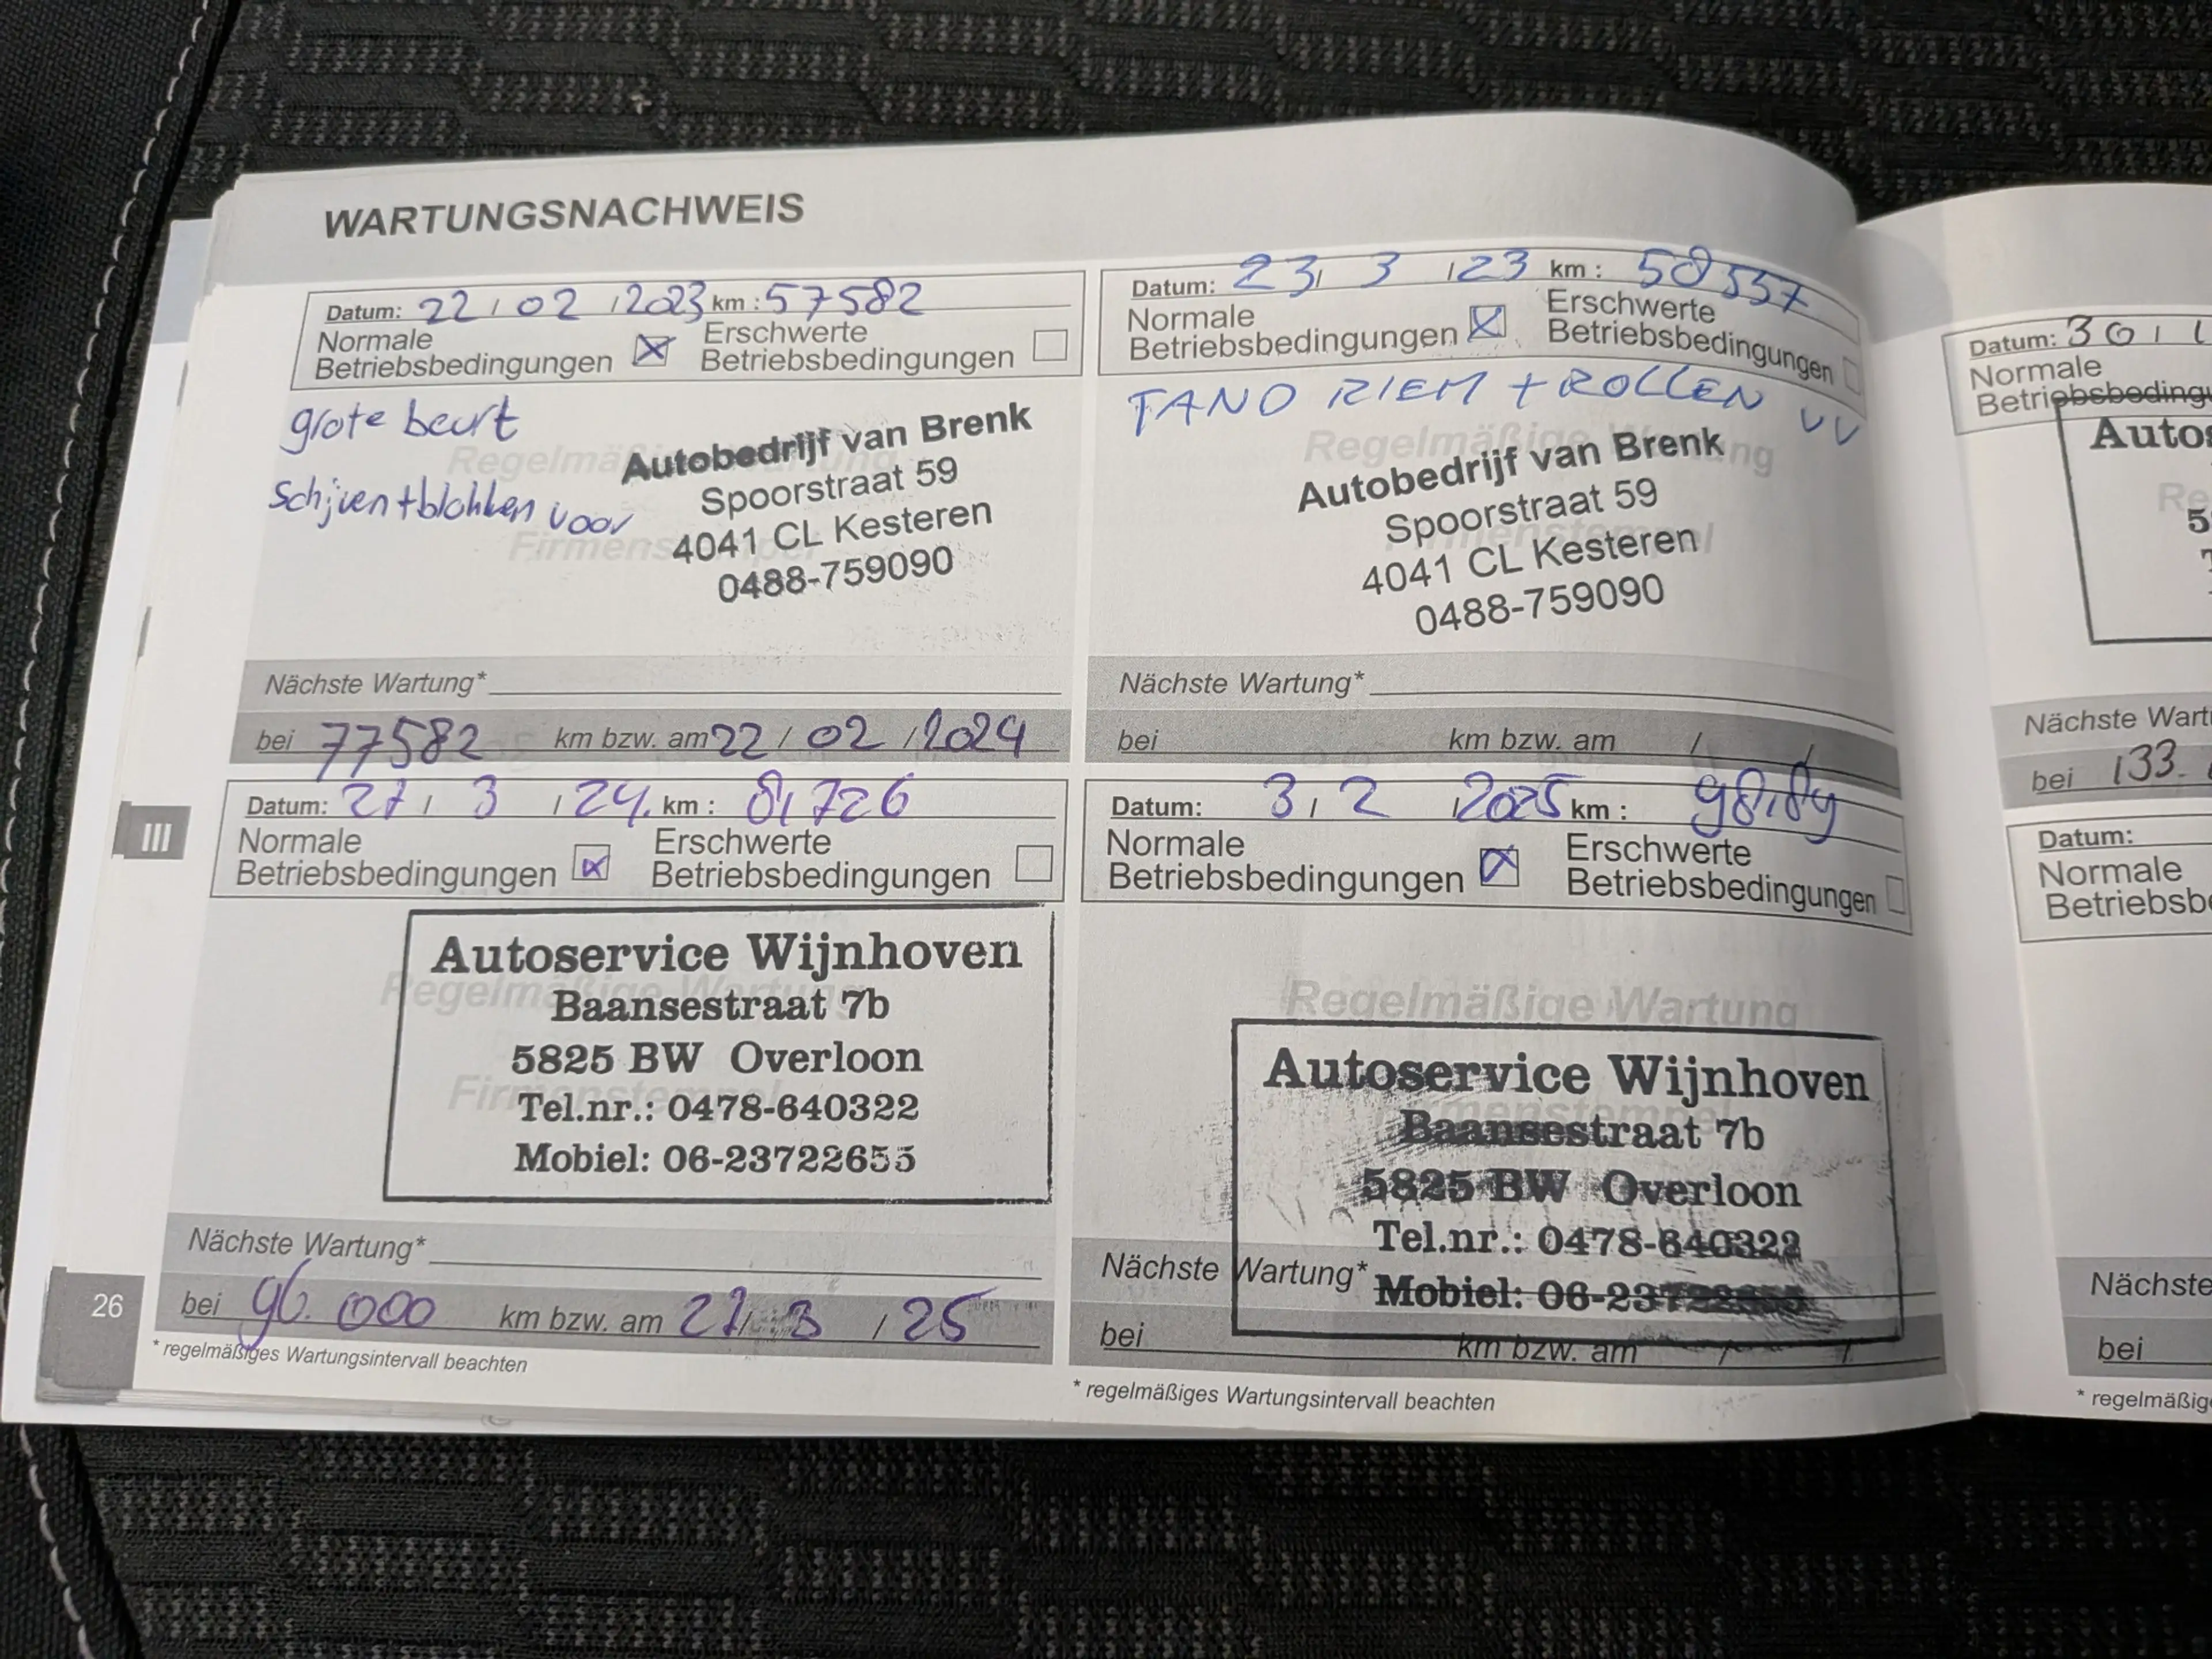 WARTUNGSNACHWEIS
Datum: 22 / 02 / 2023 km : 57582
Normale Betriebsbedingungen Erschwerte Betriebsbedingungen
grote beurt
Schijven + blokken voor
Regelmäßige Wartung
Firmenstempel
Autobedrijf van Brenk
Spoorstraat 59
4041 CL Kesteren
0488-759090
Nächste Wartung*
bei 77582 km bzw. am 22 / 02 / 2024
Datum: 23 / 3 / 23 km : 58557
Normale Betriebsbedingungen Erschwerte Betriebsbedingungen
TAND RIEM + ROLLEN VV
Regelmäßige Wartung
Firmenstempel
Autobedrijf van Brenk
Spoorstraat 59
4041 CL Kesteren
0488-759090
Nächste Wartung*
bei km bzw. am / /
III
Datum: 27 / 3 / 24. km : 81726
Normale Betriebsbedingungen Erschwerte Betriebsbedingungen
Regelmäßige Wartung
Firmenstempel
Autoservice Wijnhoven
Baansestraat 7b
5825 BW Overloon
Tel.nr.: 0478-640322
Mobiel: 06-23722655
Nächste Wartung*
bei 96.000 km bzw. am 27 / 3 / 25
* regelmäßiges Wartungsintervall beachten
Datum: 3 / 2 / 2025 km :
Normale Betriebsbedingungen Erschwerte Betriebsbedingungen
Regelmäßige Wartung
Firmenstempel
Autoservice Wijnhoven
Baansestraat 7b
5825 BW Overloon
Tel.nr.: 0478-640322
Mobiel: 06-23722655
Nächste Wartung*
bei km bzw. am / /
* regelmäßiges Wartungsintervall beachten
26
Datum: 30 /
Normale
Betriebsbedingu
Autos
Re
5
T
Nächste Wart
bei 133.
Datum:
Normale
Betriebsb
Nächste
bei
* regelmäßig